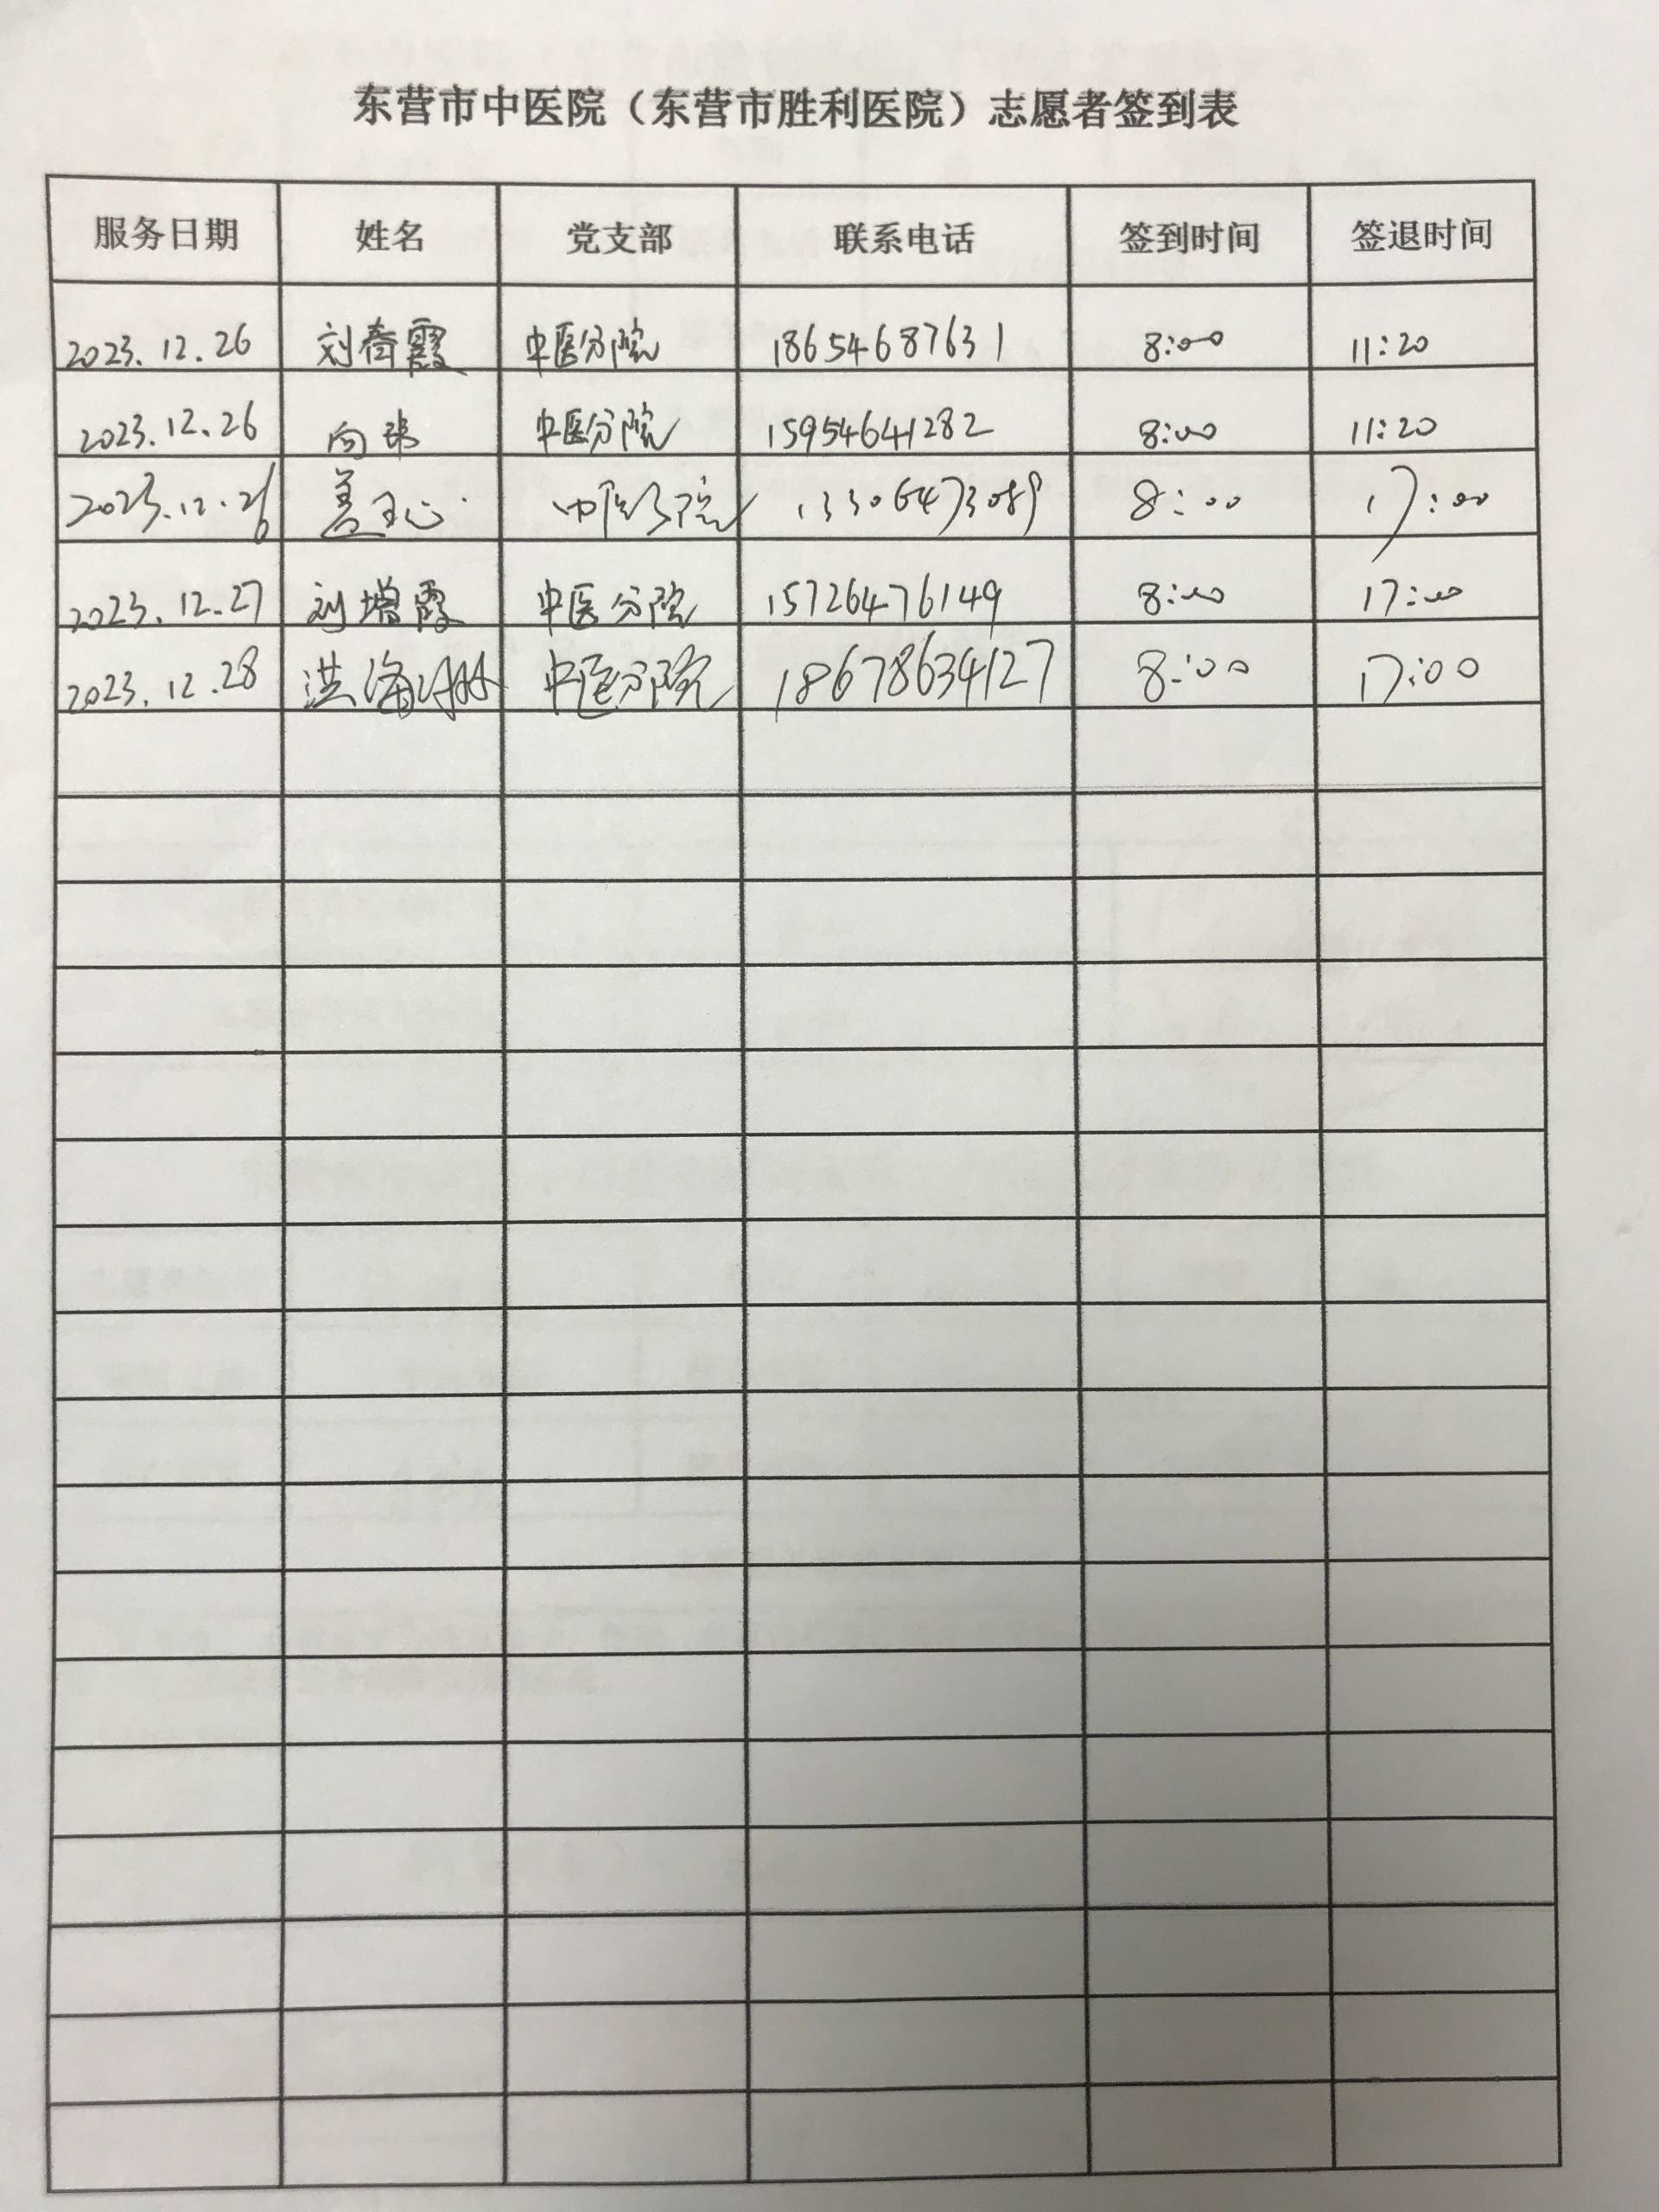 东营市中医院（东营市胜利医院）志愿者签到表
服务日期 姓名 党支部 联系电话 签到时间 签退时间
2023.12.26 刘春霞 中医分院 18654687631 8:00 11:20
2023.12.26 向 中医分院 15954641282 8:00 11:20
2023.12.26 盖 中医分院 13306473089 8:00 17:00
2023.12.27 刘增霞 中医分院 15726476149 8:00 17:00
2023.12.28 洪海 中医分院 18678634127 8:00 17:00